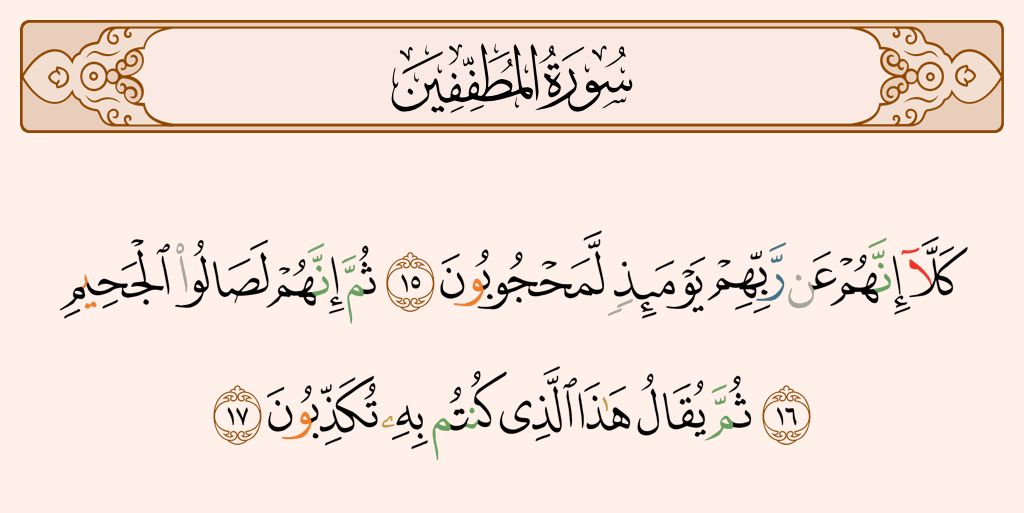 سُورَةُ المُطَفِّفِينَ
كَلَّآ إِنَّهُمْ عَن رَّبِّهِمْ يَوْمَئِذٍ لَّمَحْجُوبُونَ ١٥ ثُمَّ إِنَّهُمْ لَصَالُوا۟ ٱلْجَحِيمِ
١٦ ثُمَّ يُقَالُ هَٰذَا ٱلَّذِى كُنتُم بِهِۦ تُكَذِّبُونَ ١٧